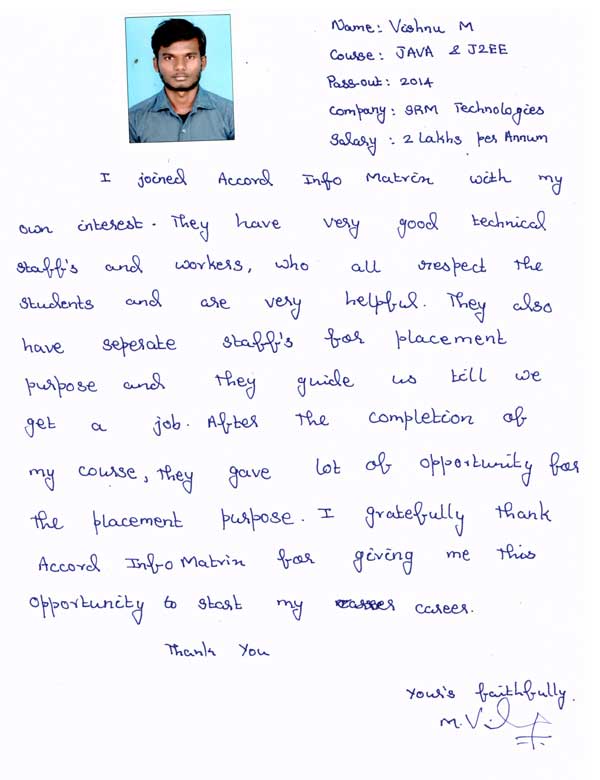 Name: Vishnu M
Course: JAVA & J2EE
Pass-out: 2014
Company: SRM Technologies
Salary: 2 Lakhs per Annum
I joined Accord Info Matrix with my
own interest. They have very good technical
staff's and workers, who all respect the
students and are very helpful. They also
have seperate staff's for placement
purpose and they guide us till we
get a job. After the completion of
my course, they gave lot of opportunity for
the placement purpose. I gratefully thank
Accord Info Matrix for giving me this
opportunity to start my career.
Thank You
Your's faithfully.
M.Vi